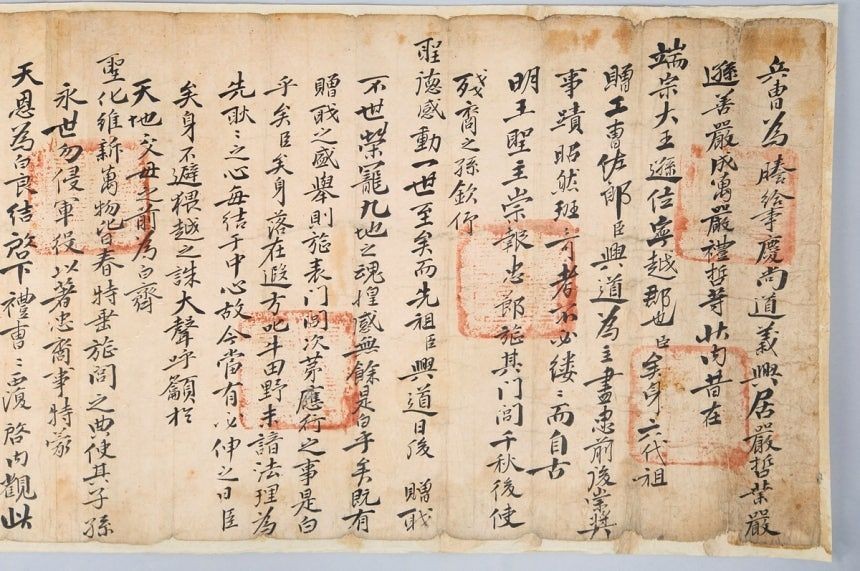 兵曹為謄給事慶尚道義興居嚴哲業嚴
遜善嚴成萬嚴禮哲等狀內昔在
端宗大王遜位寧越郡也臣矣身六代祖
贈工曹佐郎臣興道為主盡忠前後崇獎
事蹟昭然班班可考不必縷縷而自古
明王聖主崇報忠節旌其門閭千秋後使
殘裔之孫欽仰
聖德感動一世至矣而先祖臣興道日後贈職
不世榮寵九地之魂惶感無餘是白乎矣既有
贈職之盛舉則旌表門閭次第應行之事是白
乎矣臣矣身落在遐方叱牛田野未諳法理為
先耿耿之心每結于中心故今當有必伸之日臣
矣身不避猥越之誅大聲呼籲於
天地父母之前為白齊
聖化維新萬物皆春特垂旌閭之典使其子孫
永世勿侵軍役以著忠裔事特蒙
天恩為白良結啓下禮曹禮曹覆啓內觀此